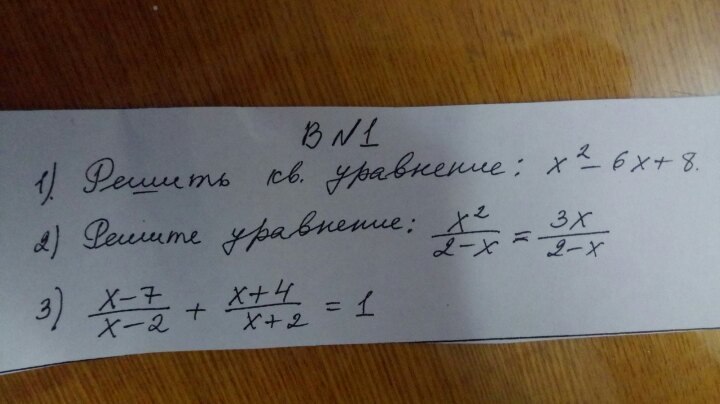 В N1
1). Решить кв. уравнение: x² - 6x + 8.
2) Решите уравнение: x²/(2-x) = 3x/(2-x)
3) (x-7)/(x-2) + (x+4)/(x+2) = 1